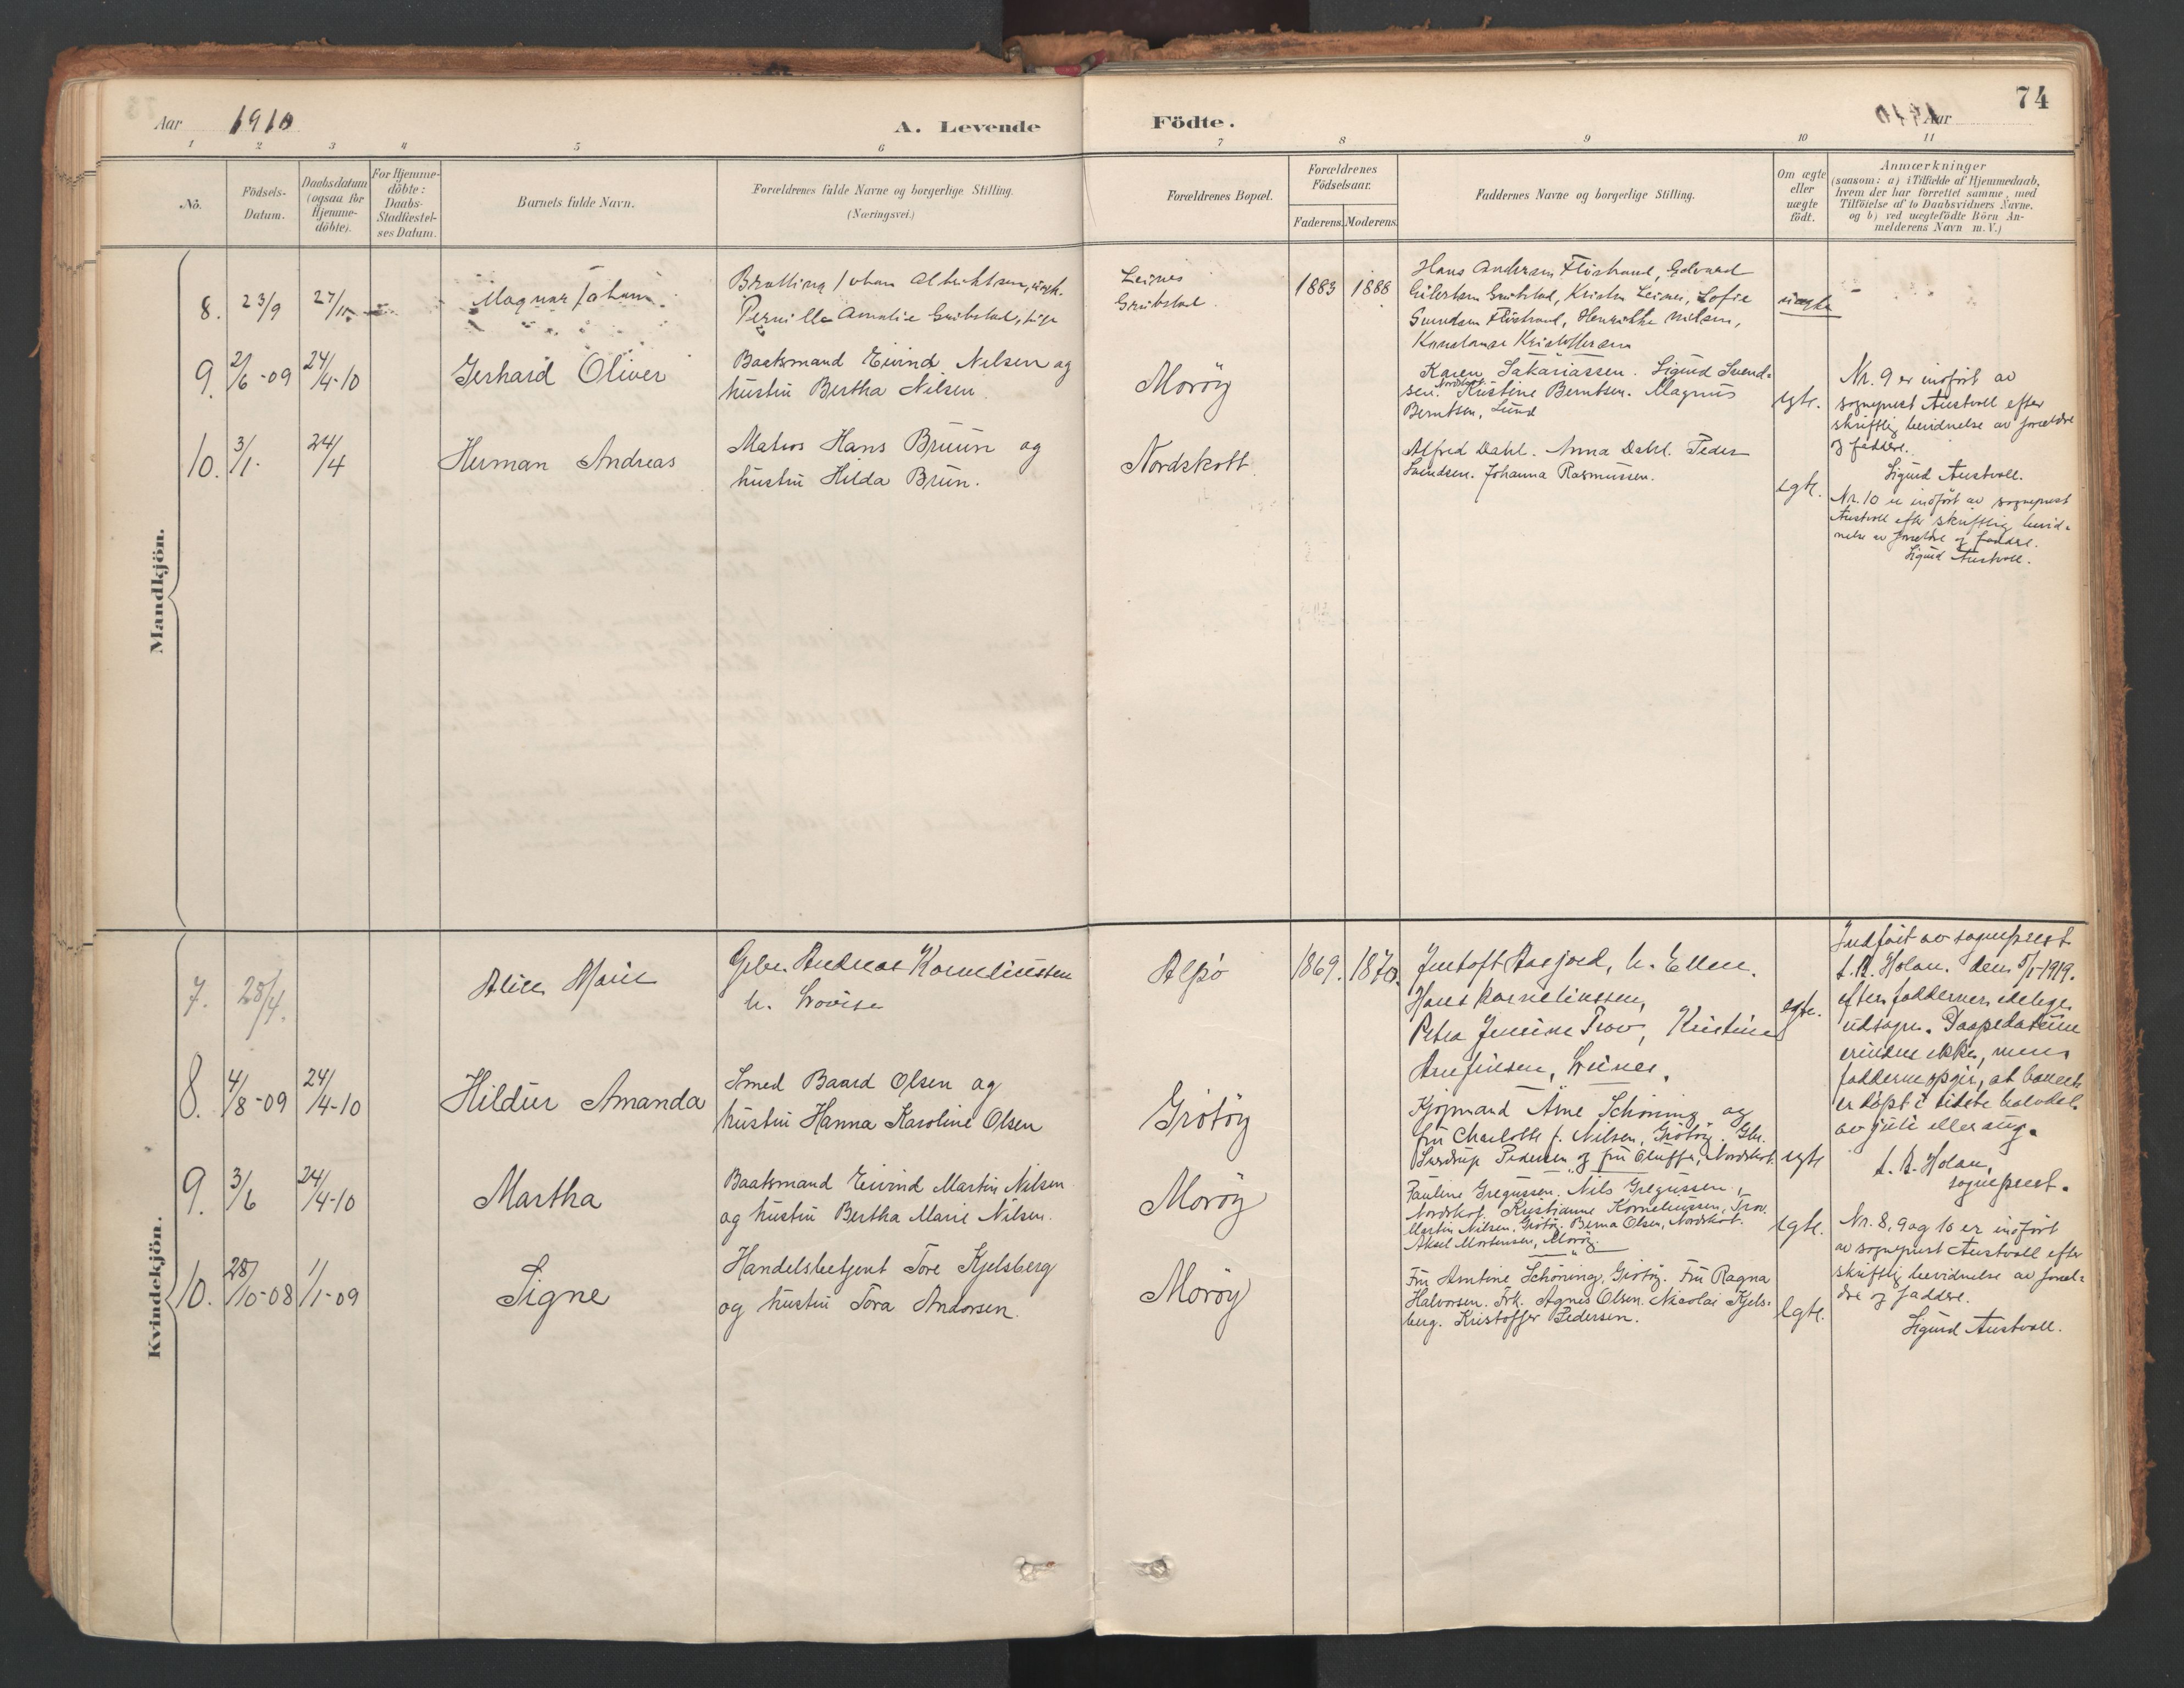 74
Aar 1910 A. Levende Födte. Aar 1910
1 2 3 4 5 6 7 8 9 10 11
No. Födsels-Datum. Daabsdatum (ogsaa for Hjemme-döbte). For Hjemme-döbte: Daabs-Stadfæstel-ses Datum. Barnets fulde Navn. Forældrenes fulde Navne og borgerlige Stilling. (Næringsvei.) Forældrenes Bopæl. Forældrenes Födselsaar. Faderens. Moderens. Faddernes Navne og borgerlige Stilling. Om ægte eller uægte födt. Anmærkninger (saasom: a) i Tilfælde af Hjemmedaab, hvem der har forrettet samme, med Tilföielse af to Daabsvidners Navne. og b) ved uægtefödte Börn An-melderens Navn m. V.)
Mandkjön.
8. 23/9 27/11 Magnar Johan
Johan Albriktsen, ugk.
Pernille Amalie Grübstad, pige
Leines
Grübstad.
1883 1888
Hans Andersen Flöstrand, Edvard
Eilertsen Grübstad, Kristen Leines, Sofie
Flöstrand, Henrikke Nilsen,
Konstanse Kristoffersen
uægte
9. 2/6-09 24/4-10 Gerhard Oliver
Baatsmand Eivind Nilsen og
hustru Bertha Nilsen.
Moröy
Karen Sakariassen. Sigurd Svend-
sen. Nordskot. Kristine Berntsen. Magnus
Berntsen, Lund
egte.
Nr. 9 er indfört av
sogneprest Austvoll efter
skriftlig bevidnelse av forældre
og faddere.
Sigurd Austvoll.
10. 3/1. 24/4 Herman Andreas
Matros Hans Bruun og
hustru Hilda Bruun.
Nordskott.
Alfred Dahl. Anna Dahl. Peder
Svendsen. Johanna Rasmussen.
egte.
Nr. 10 er indfört av sogneprest
Austvoll efter skriftlig bevid-
nelse av forældre og faddere.
Sigurd Austvoll.
Kvindekjön.
7. 28/4. Alice Marie
Gbr. Andreas Korneliussen
h. Lovise
Alpö
1869. 1870.
Jentoft Aasjord, h. Ellen.
Hans Korneliussen,
Petra Jensine Trov, Kristine
Arnfinsen, Leines.
egte.
Indfört av sogneprest
L. R. Holan. den 5/1-1919.
efter faddernes edelige
udsagn. Daapsdatum
erindres ikke, men
fadderne opgir, at barnet
er döpt i sidste halvdel
av juli eller aug.
L. R. Holan,
sogneprest.
8. 4/8-09 24/4-10 Hildur Amanda
Smed Baard Olsen og
hustru Hanna Karoline Olsen
Grötöy
Kjöpmand Arne Schöning og
fru Charlotte f. Nilsen, Grötöy. Gbr.
Pedersen og fru Oluffa, Nordskot.
egte
9. 3/6 24/4-10 Martha
Baatsmand Eivind Martin Nilsen
og hustru Bertha Marie Nilsen.
Moröy
Pauline Gregussen. Nils Gregussen,
Nordskot. Kristianne Korneliussen, Trov.
Martin Nilsen, Grötöy. Berna Olsen, Nordskot.
Aksel Mortensen, Moröy.
egte.
Nr. 8, 9 og 10 er indfört
av sogneprest Austvoll efter
skriftlig bevidnelse av foræl-
dre og faddere.
Sigurd Austvoll.
10. 28/10-08 1/1-09 Signe
Handelsbetjent Tore Kjelsberg
og hustru Tora Andorsen.
Moröy
Fru Arntine Schöning, Grötöy. Fru Ragna
Halvorsen. Frk. Agnes Olsen. Nicolai Kjels-
berg. Kristoffer Pedersen.
egte.